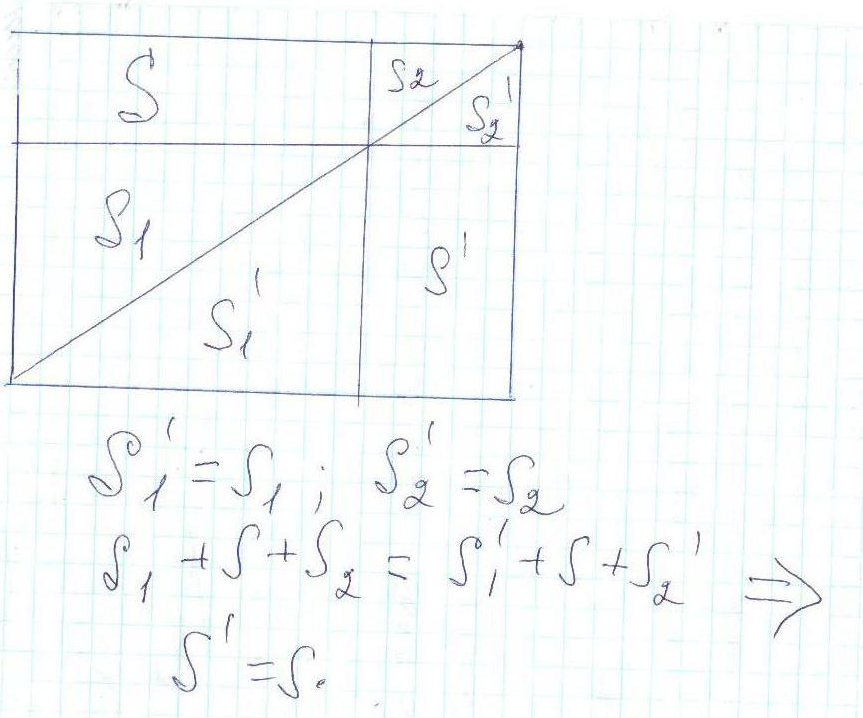 S
S₂
S₂'
S₁
S₁'
S'
S₁' = S₁ ; S₂' = S₂
S₁ + S + S₂ = S₁' + S + S₂' ⇒
S' = S.